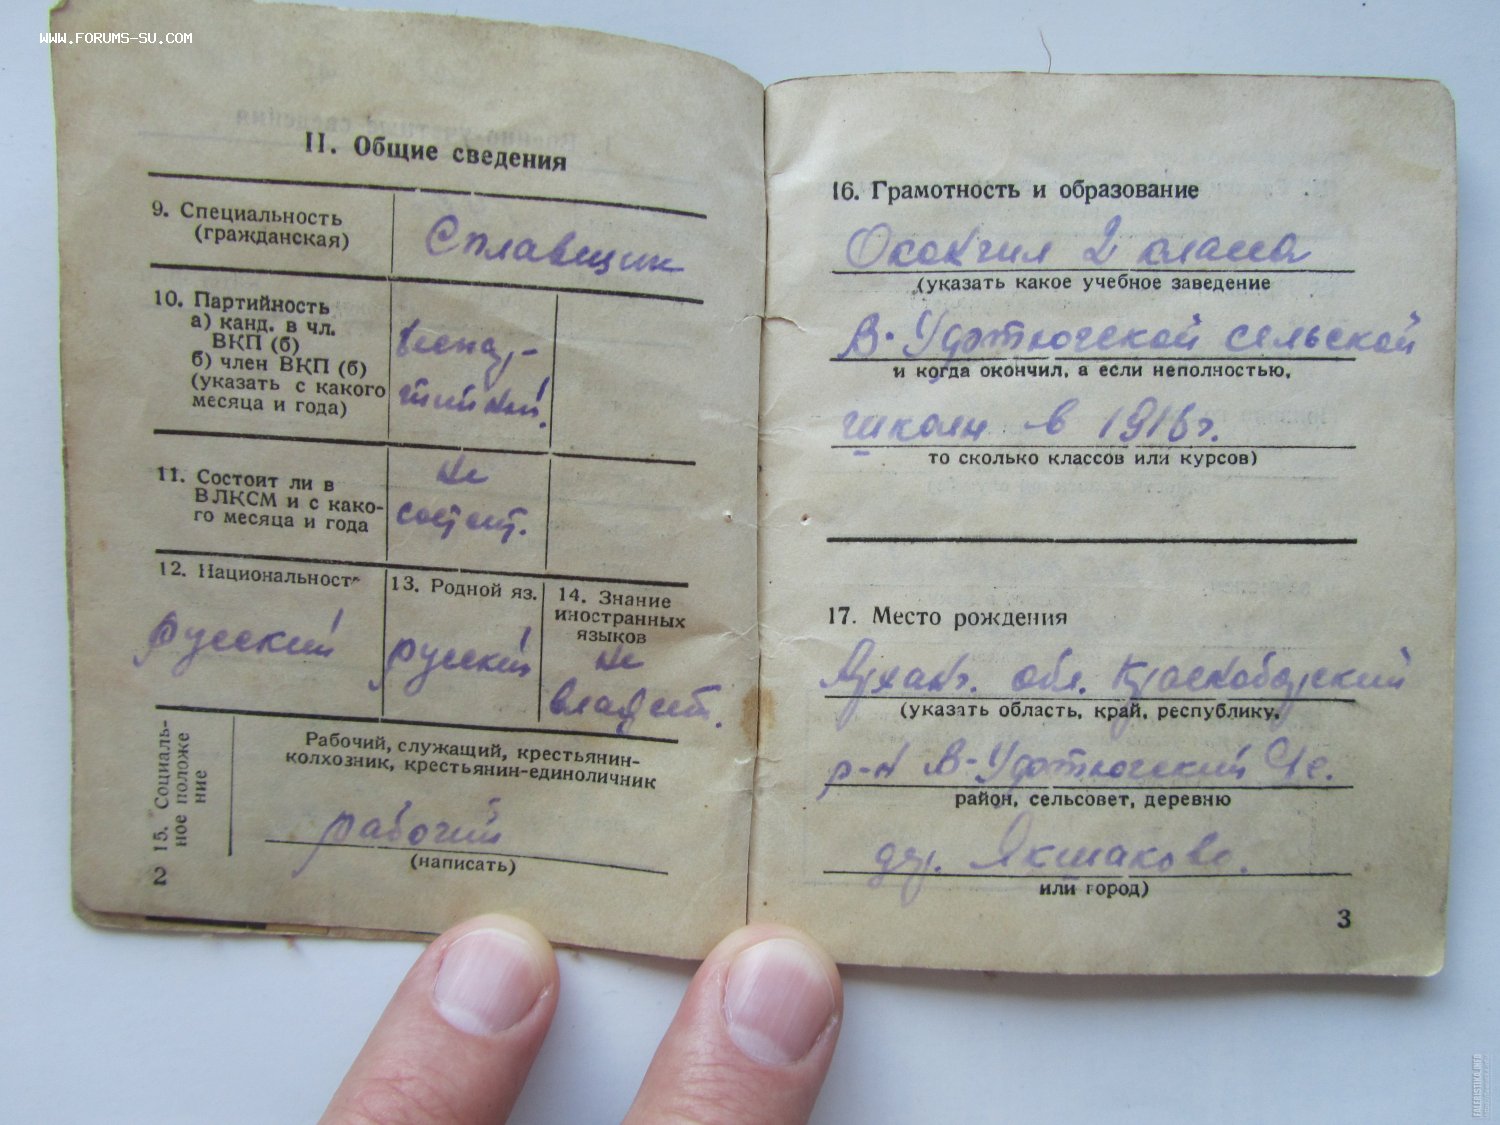 www.forums-su.com
II. Общие сведения
9. Специальность
(гражданская)
Сплавщик
10. Партийность
а) канд. в чл.
ВКП (б)
б) член ВКП (б)
(указать с какого
месяца и года)
беспар-
тийный.
11. Состоит ли в
ВЛКСМ и с како-
го месяца и года
не
состоит.
12. Национальность
русский
13. Родной яз.
русский
14. Знание
иностранных
языков
не
владеет.
15. Социаль-
ное положе
ние
Рабочий, служащий, крестьянин-
колхозник, крестьянин-единоличник
рабочий
(написать)
2
16. Грамотность и образование
Окончил 2 класса
(указать какое учебное заведение
В-Уфтюгской сельской
и когда окончил, а если неполностью,
школы в 1916г.
то сколько классов или курсов)
17. Место рождения
Арханг. обл. Красноборский
(указать область, край, республику,
р-н В-Уфтюгский
район, сельсовет, деревню
дер. Якшаково.
или город)
3
FALERISTIKA.INFO